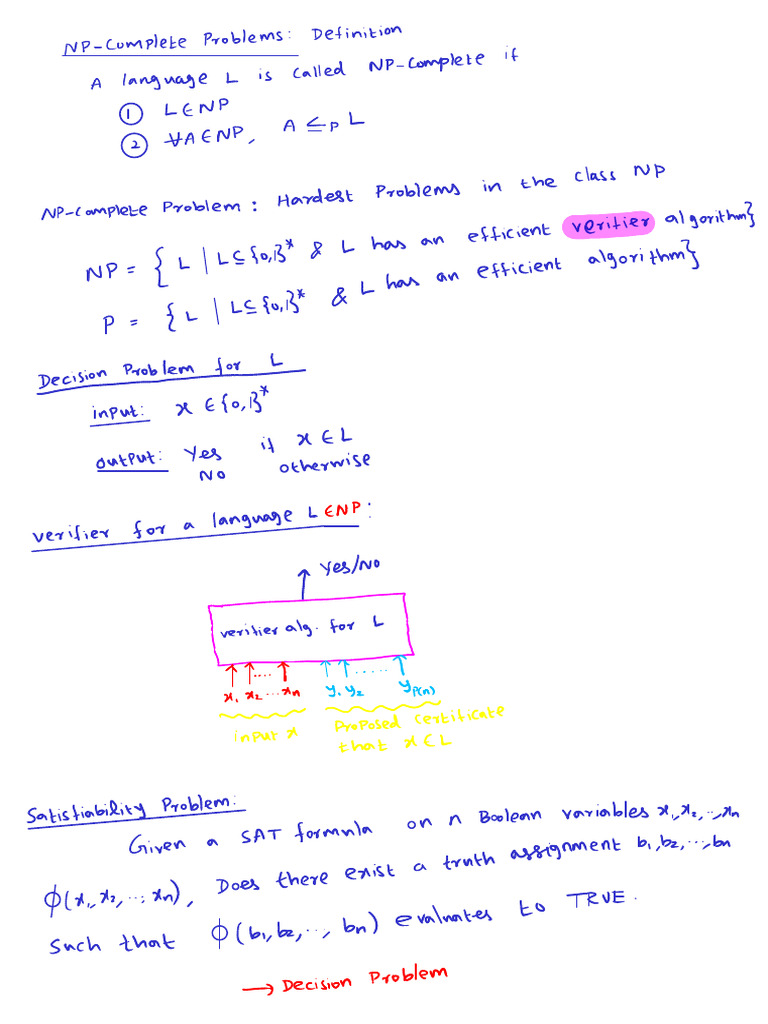 NP-Complete Problems: Definition
A language L is called NP-Complete if
① L∈NP
② ∀A∈NP, A ≤p L
NP-Complete Problem: Hardest Problems in the class NP
NP = { L | L⊆{0,1}* & L has an efficient verifier algorithm}
P = { L | L⊆{0,1}* & L has an efficient algorithm}
Decision Problem for L
input: x ∈{0,1}*
output: Yes if x∈L
No otherwise
verifier for a language L∈NP:
Yes/No
verifier alg. for L
x₁ x₂ ... xn y₁ y₂ ...... yP(n)
input x Proposed certificate
that x∈L
Satisfiability Problem:
Given a SAT formula on n Boolean variables x₁, x₂, .., xn
ϕ(x₁, x₂, ..., xn), Does there exist a truth assignment b₁, b₂, ..., bn
Such that ϕ(b₁, b₂, .., bn) evaluates to TRUE.
→ Decision Problem